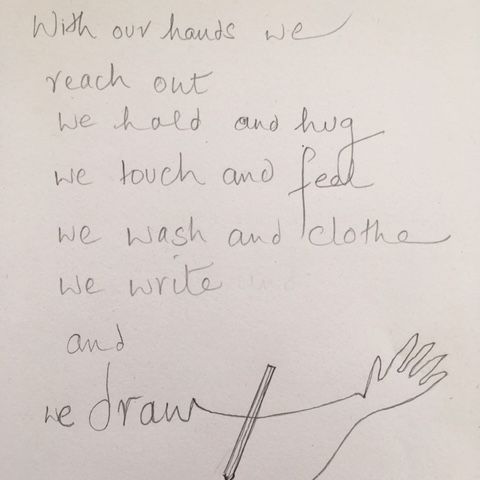 With our hands we
reach out
we hold and hug
we touch and feel
we wash and clothe
we write
and
we draw